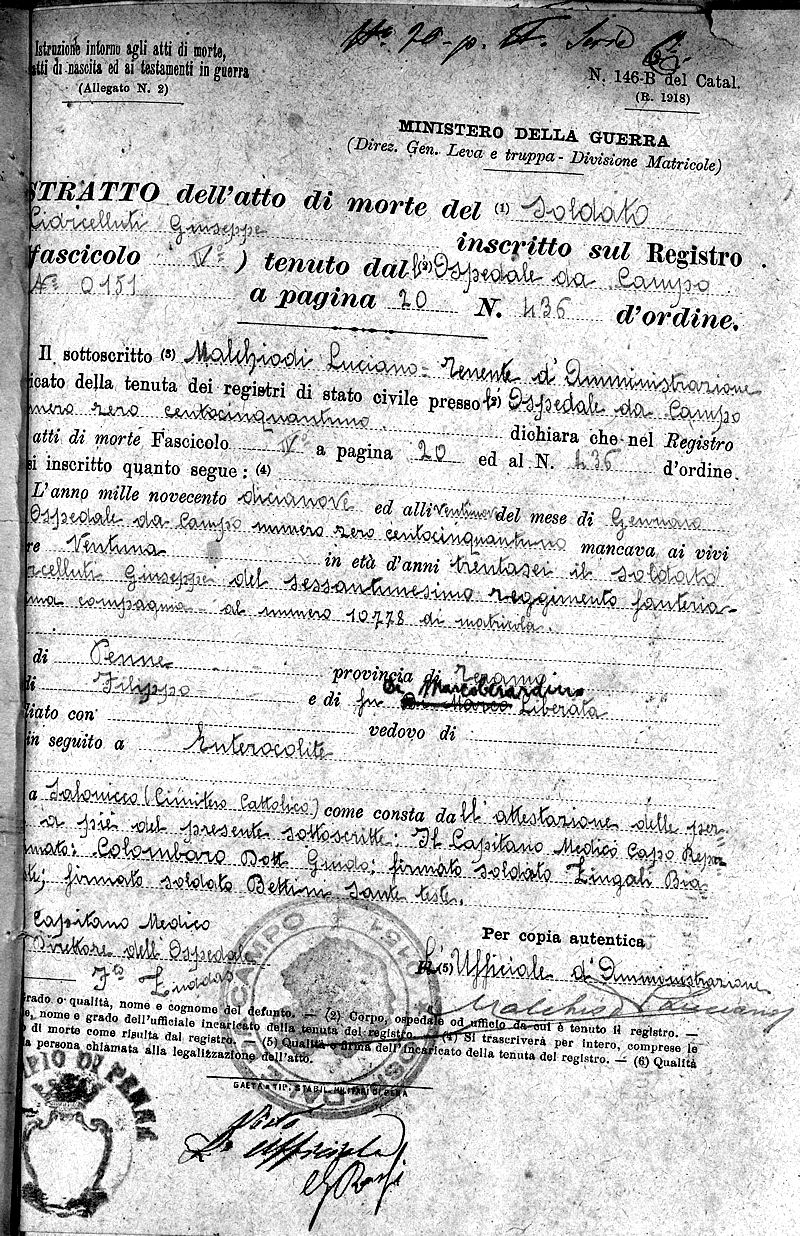 Istruzione intorno agli atti di morte,
atti di nascita ed ai testamenti in guerra
(Allegato N. 2)
No 20 - p. II. Serie
N. 146-B del Catal.
(R. 1918)
MINISTERO DELLA GUERRA
(Direz. Gen. Leva e truppa - Divisione Matricole)
STRATTO dell'atto di morte del (1) Soldato
Giuseppe inscritto sul Registro
fascicolo IV° ) tenuto dal l'(2) Ospedale da Campo
No 0151 a pagina 20 N. 436 d'ordine.
Il sottoscritto (3) Malchiodi Luciano - Tenente d'Amministrazione
icato della tenuta dei registri di stato civile presso l'(2) Ospedale da Campo
mero zero centocinquantuno dichiara che nel Registro
atti di morte Fascicolo IV° a pagina 20 ed al N. 436 d'ordine.
si inscritto quanto segue: (4)
L'anno mille novecento dicianove ed alli ventinove del mese di Gennaio
Ospedale da Campo numero zero centocinquantuno mancava ai vivi
re Ventuna in età d'anni trentasei il soldato
icelluti Giuseppe del sessantunesimo reggimento fanteria
ma compagnia al numero 10778 di matricola.
di Penne provincia di Teramo
di Filippo e di fu Di Marcoberardino Di Marco Liberata
liato con vedovo di
in seguito a Enterocolite
a Salonicco (Cimitero Cattolico) come consta dall'attestazione delle per-
a piè del presente sottoscritte: Il Capitano Medico Capo Repar
mato: Colombaro Dott Guido; firmato soldato Zingali Bia-
te; firmato soldato Bettini Sante teste.
Capitano Medico
Direttore dell'Ospedale
Fto Zuddas
Per copia autentica
(5) L'Ufficiale d'Amministrazione
Malchiodi Luciano
grado o qualità, nome e cognome del defunto. — (2) Corpo, ospedale od ufficio da cui è tenuto il registro. —
e, nome e grado dell'ufficiale incaricato della tenuta del registro. — (4) Si trascriverà per intero, comprese le
o di morte come risulta dal registro. (5) Qualità e firma dell'incaricato della tenuta del registro. — (6) Qualità
la persona chiamata alla legalizzazione dell'atto.
CAMPO 0151
GAETA - TIP. STABIL. MILITARI DI PENA
PIO DI PENNE
Visto
L'Ufficiale